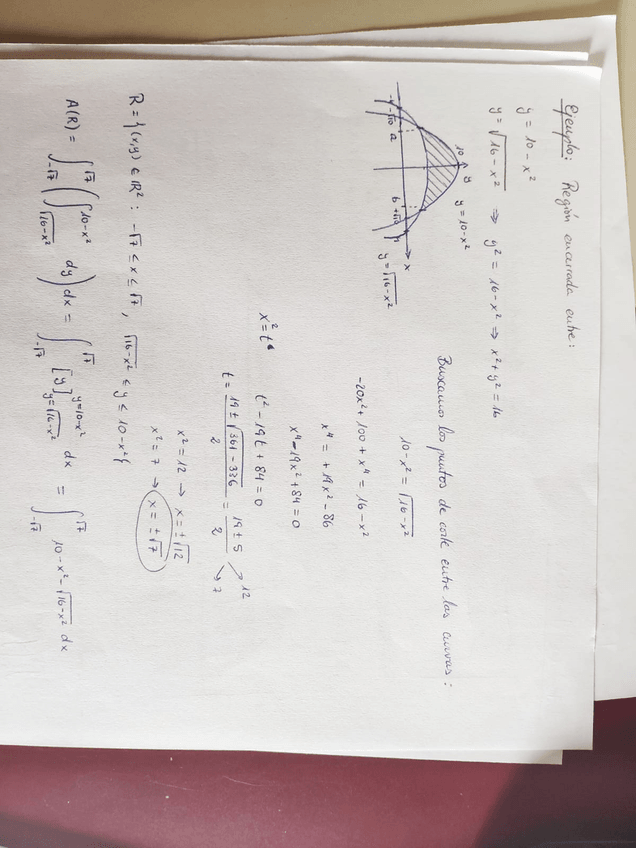 Ejemplo: Región encerrada entre:
y = 10 - x²
y = √(16 - x²) ⇒ y² = 16 - x² ⇒ x² + y² = 16
Buscamos los puntos de corte entre las curvas:
10 y
y = 10 - x²
-4 -√10 a b +√10 x
y = √(16 - x²)
10 - x² = √(16 - x²)
-20x² + 100 + x⁴ = 16 - x²
x⁴ = + 19x² - 86
x⁴ - 19x² + 84 = 0
x² = t
t² - 19t + 84 = 0
t = (19 ± √(361 - 336))/2 = (19 ± 5)/2 ↗ 12 ↘ 7
x² = 12 → x = ±√12
x² = 7 → x = ±√7
R = {(x,y) ∈ ℝ² : -√7 ≤ x ≤ √7, √(16 - x²) ≤ y ≤ 10 - x²}
A(R) = ∫_{-√7}^{√7} (∫_{√(16-x²)}^{10-x²} dy) dx = ∫_{-√7}^{√7} [y]_{y=√(16-x²)}^{y=10-x²} dx = ∫_{-√7}^{√7} 10 - x² - √(16 - x²) dx